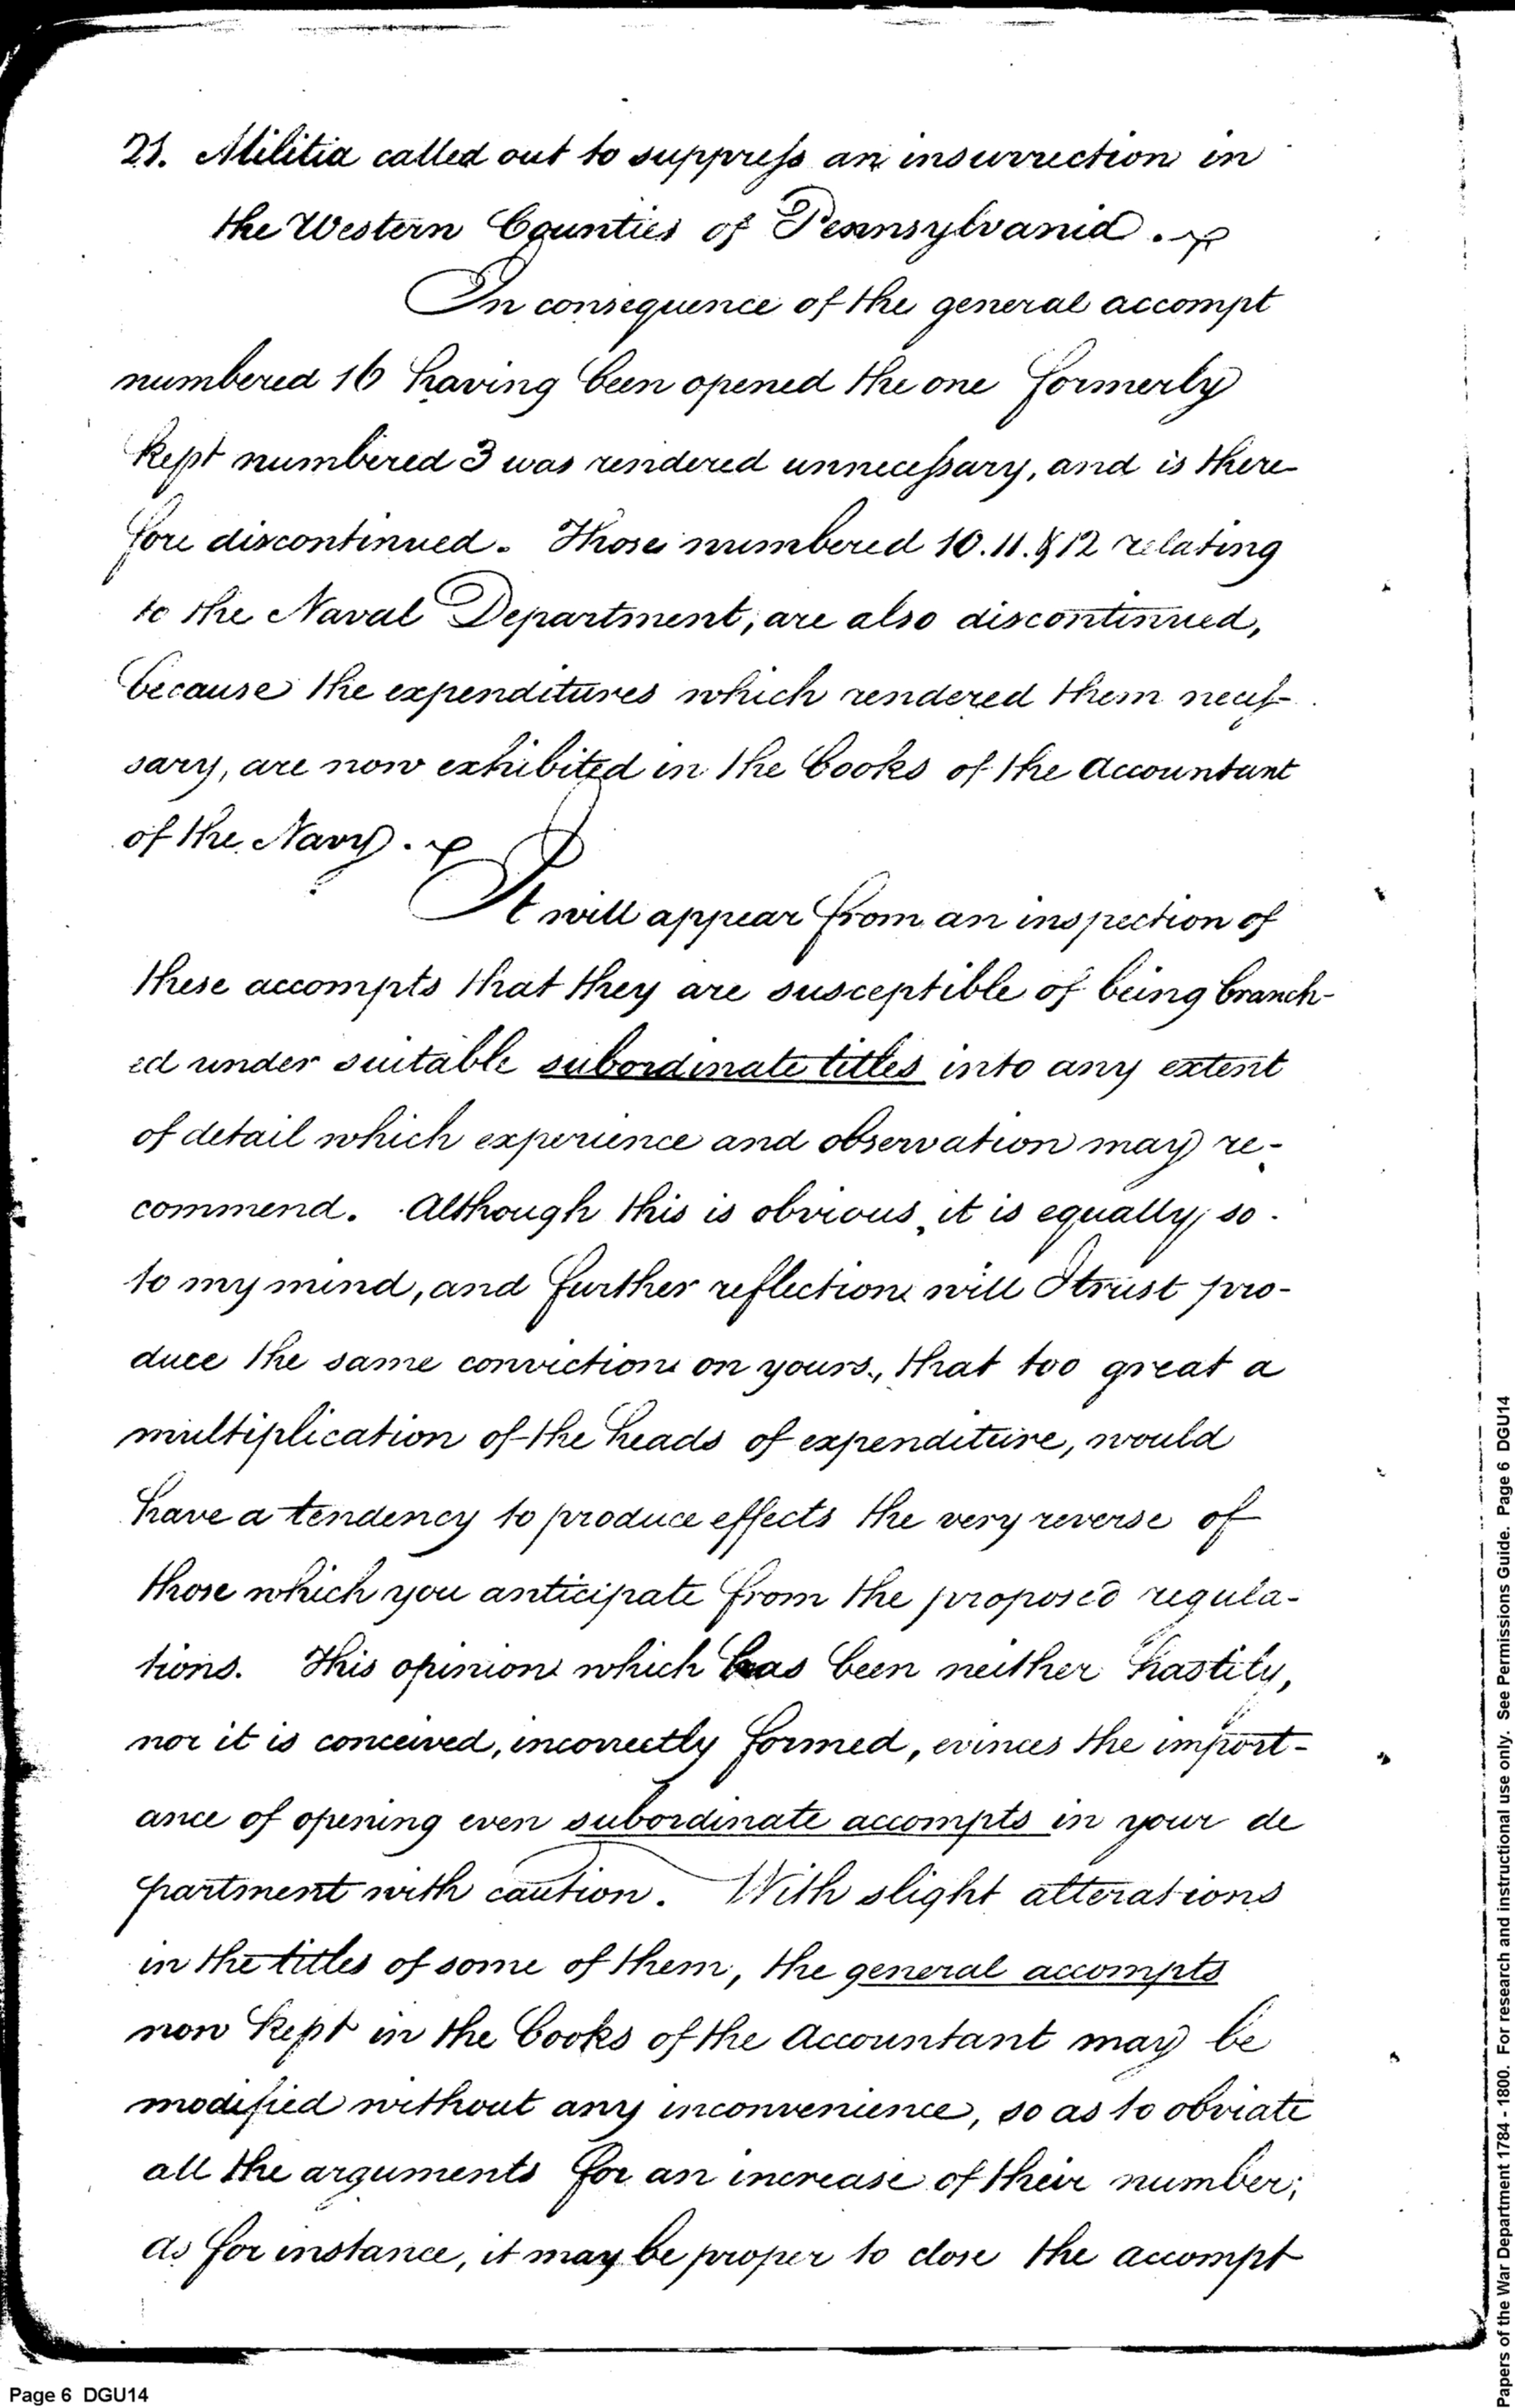 21. Militia called out to suppress an insurrection in
the Western Counties of Pennsylvania.
In consequence of the general accompt
numbered 16 having been opened the one formerly
kept numbered 3 was rendered unnecessary, and is there
fore discontinued. Those numbered 10. 11. & 12 relating
to the Naval Department, are also discontinued,
because the expenditures which rendered them neces-
sary, are now exhibited in the books of the Accountant
of the Navy.
It will appear from an inspection of
these accompts that they are susceptible of being branch-
ed under suitable subordinate titles into any extent
of detail which experience and observation may re-
commend. Although this is obvious, it is equally so
to my mind, and further reflection will I trust pro-
duce the same conviction on yours, that too great a
multiplication of the heads of expenditure, would
have a tendency to produce effects the very reverse of
those which you anticipate from the proposed regula-
tions. This opinion which has been neither hastily,
nor it is conceived, incorrectly formed, evinces the import-
ance of opening even subordinate accompts in your de
partment with caution. With slight alterations
in the titles of some of them, the general accompts
now kept in the books of the Accountant may be
modified without any inconvenience, so as to obviate
all the arguments for an increase of their number;
as for instance, it may be proper to close the accompt
Page 6 DGU14
Papers of the War Department 1784 - 1800. For research and instructional use only. See Permissions Guide. Page 6 DGU14